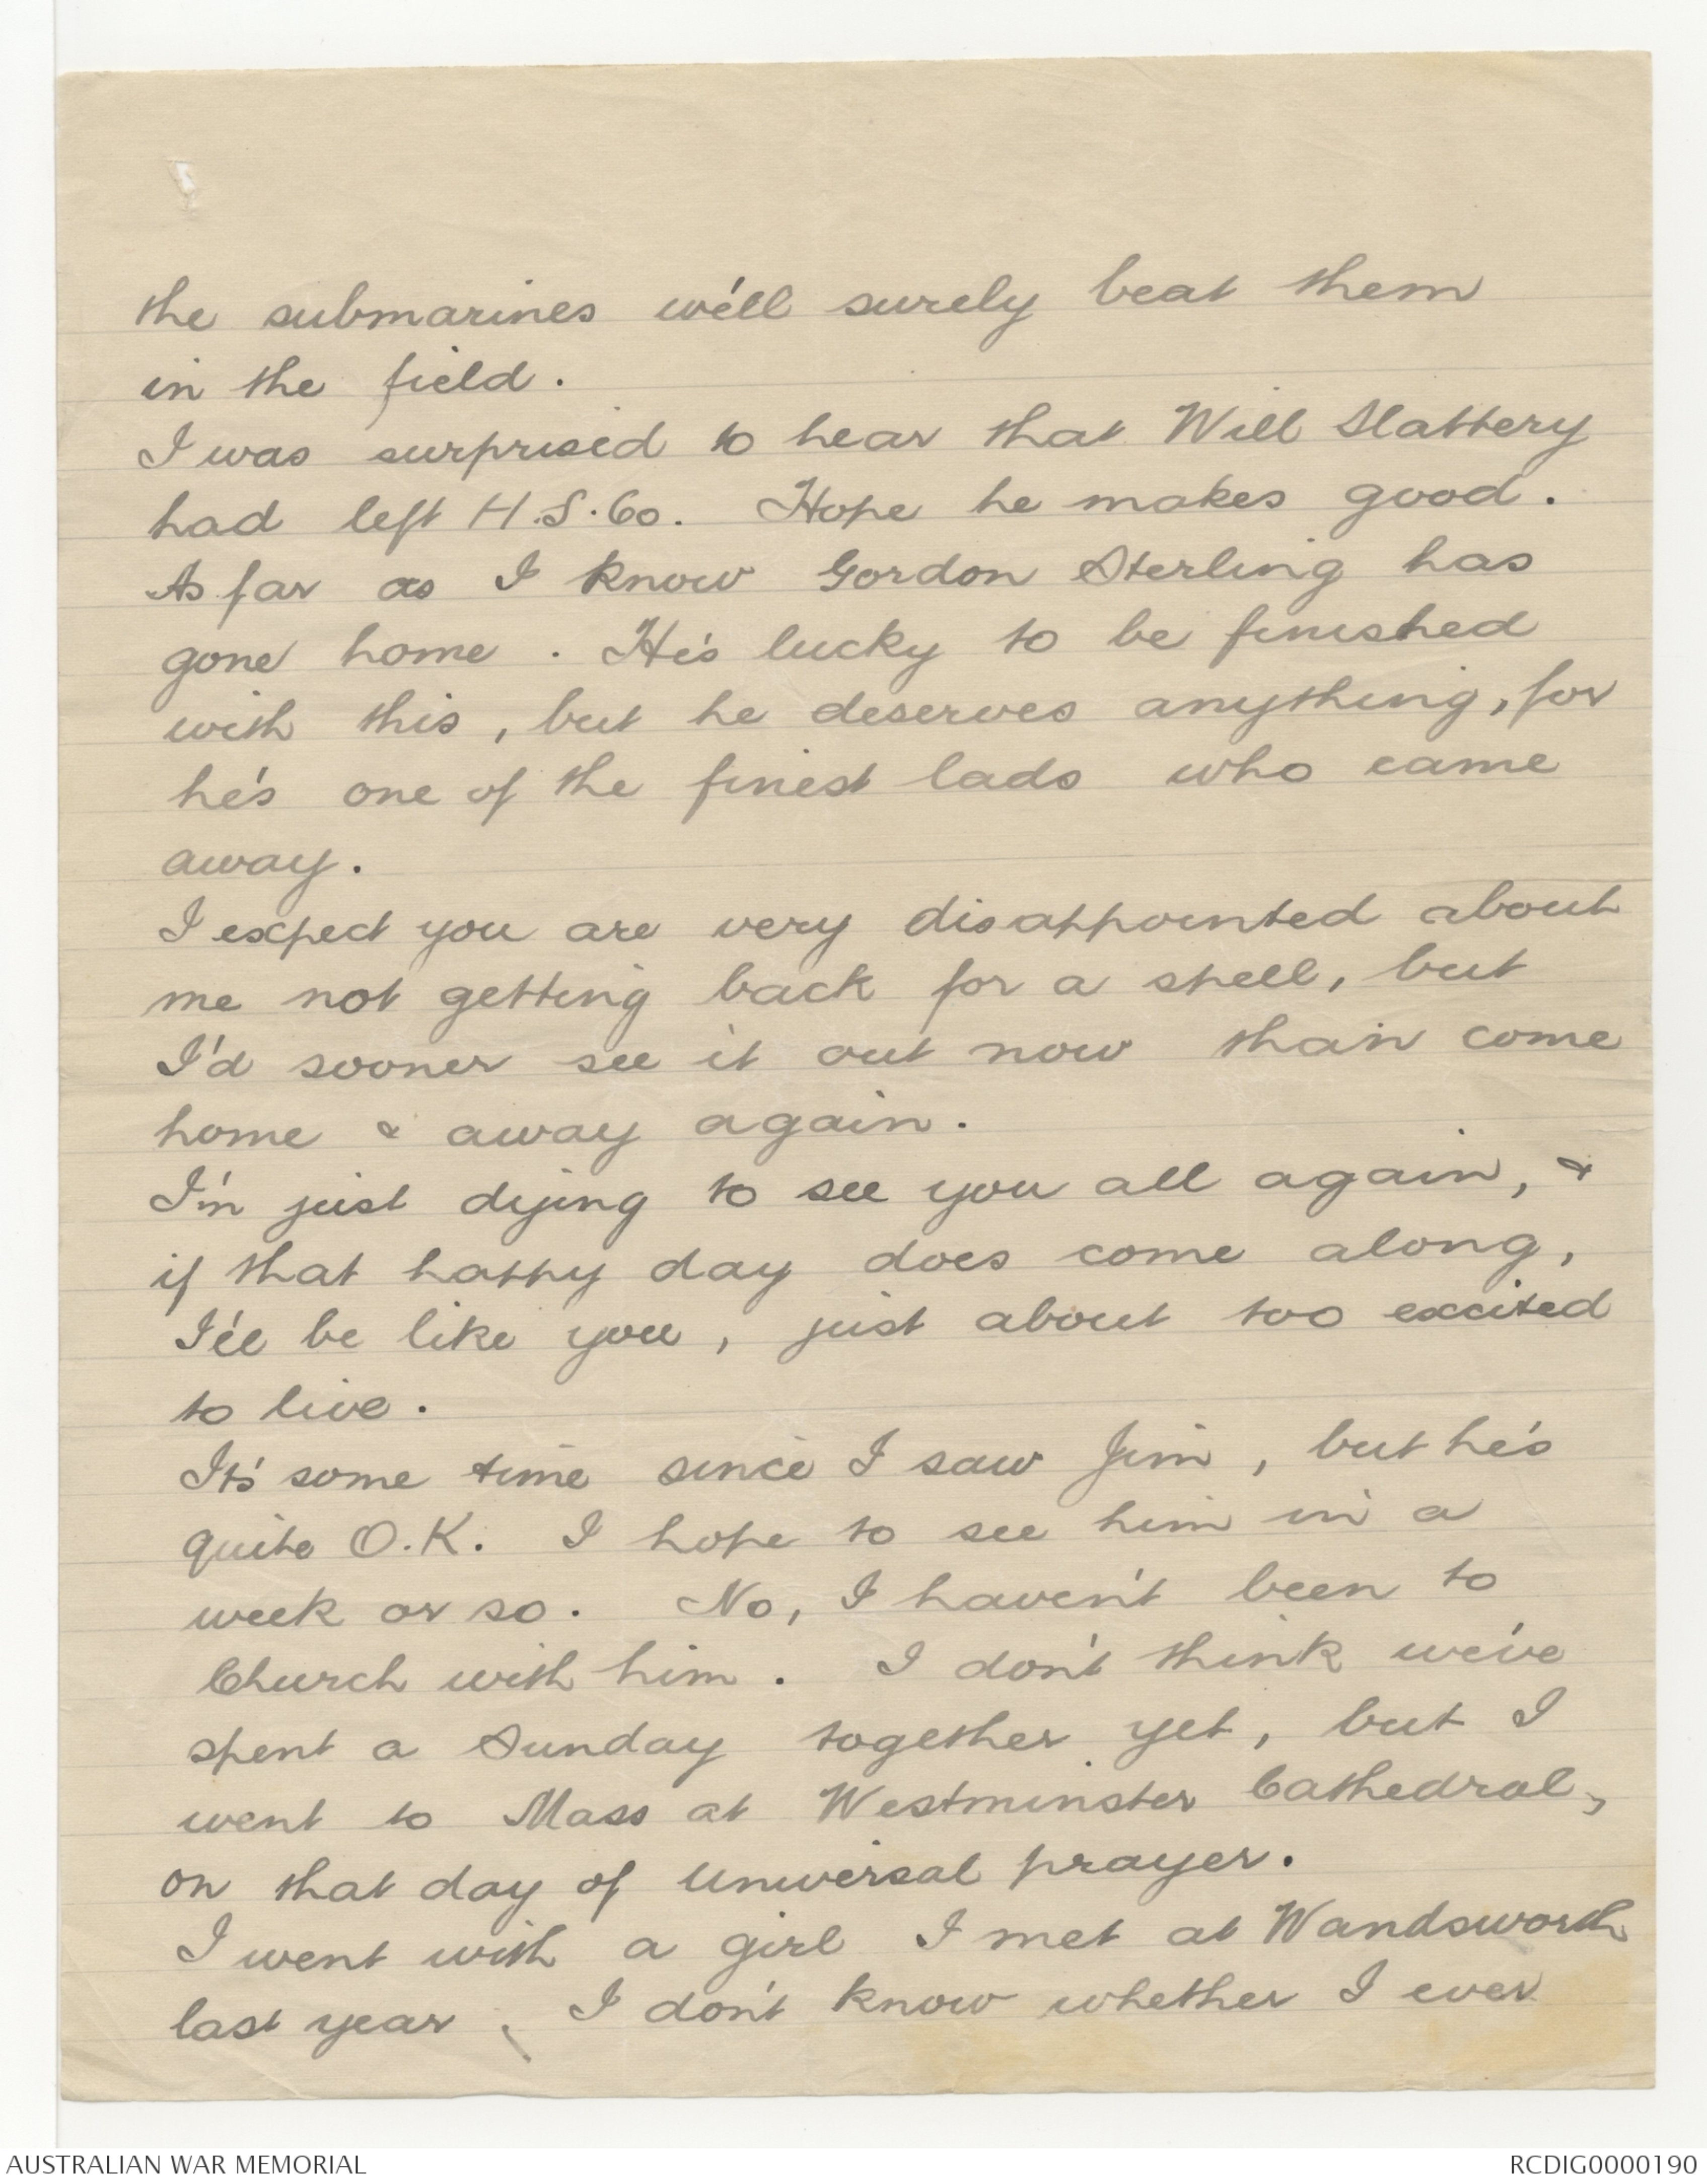 the submarines we'll surely beat them
in the field.
I was surprised to hear that Will Slattery
had left H.S.Co. Hope he makes good.
As far as I know Gordon Sterling has
gone home. He's lucky to be finished
with this, but he deserves anything, for
he's one of the finest lads who came
away.
I expect you are very disappointed about
me not getting back for a spell, but
I'd sooner see it out now than come
home & away again.
I'm just dying to see you all again, &
if that happy day does come along,
I'll be like you, just about too excited
to live.
It's some time since I saw Jim, but he's
quite O.K. I hope to see him in a
week or so. No, I haven't been to
Church with him. I don't think we've
spent a Sunday together yet, but I
went to Mass at Westminster Cathedral,
on that day of universal prayer.
I went with a girl I met at Wandsworth
last year. I don't know whether I ever
AUSTRALIAN WAR MEMORIAL
RCDIG0000190